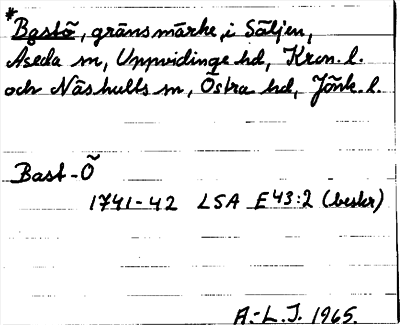 *Bastö, gränsmärke, i Säljen,
Åseda sn, Uppvidinge hd, Kron. l.
och Näshults sn, Östra hd, Jönk. l.
Bast-Ö
1741-42 LSA E43:2 (beskr)
A.-L.J. 1965.